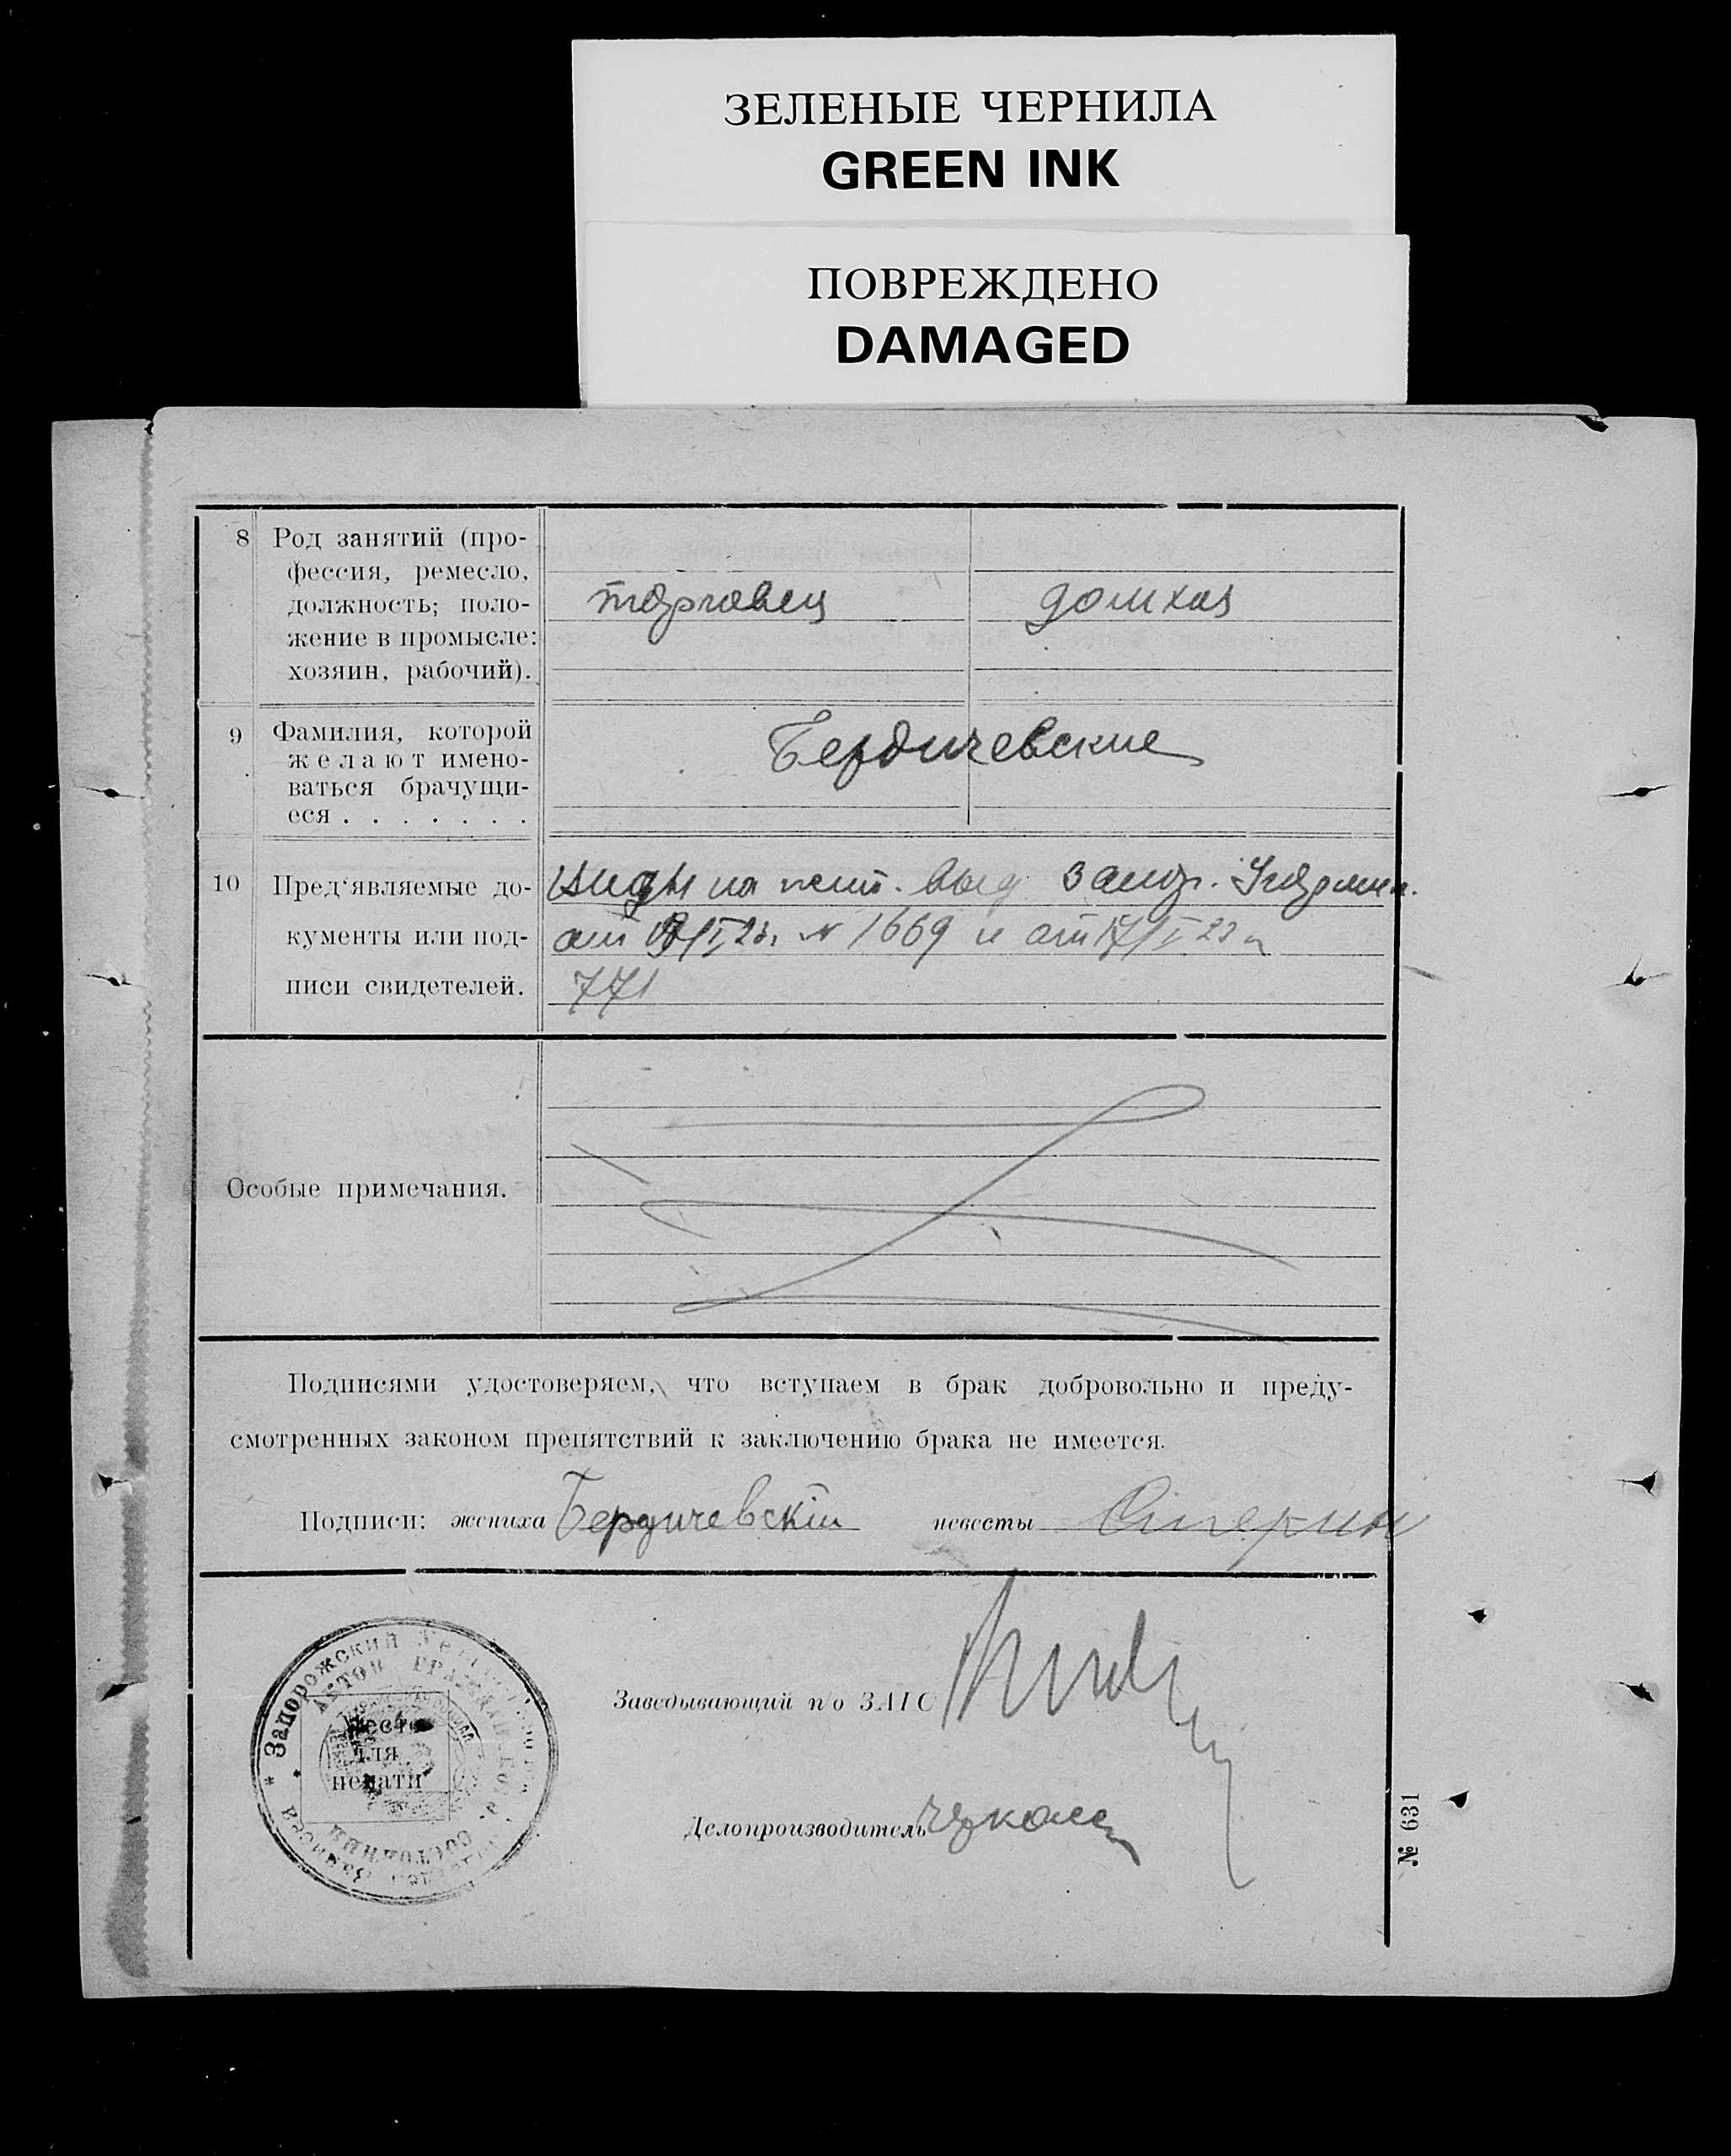 ЗЕЛЕНЫЕ ЧЕРНИЛА
GREEN INK
ПОВРЕЖДЕНО
DAMAGED
8 Род занятий (про-
фессия, ремесло,
должность; поло-
жение в промысле:
хозяин, рабочий).
торговец домхоз
9 Фамилия, которой
желают имено-
ваться брачущи-
еся . . . . . . .
Бердичевские
10 Пред'являемые до-
кументы или под-
писи свидетелей.
Виды на жит. выд. Запор.
от /I 23 № 1669 и от 17/I 23
771
Особые примечания.
Подписями удостоверяем, что вступаем в брак добровольно и преду-
смотренных законом препятствий к заключению брака не имеется.
Подписи: жениха Бердичевскій невесты
Заведывающий п/о ЗАГС
Место
для
печати
Запорожский
Делопроизводитель
№ 631